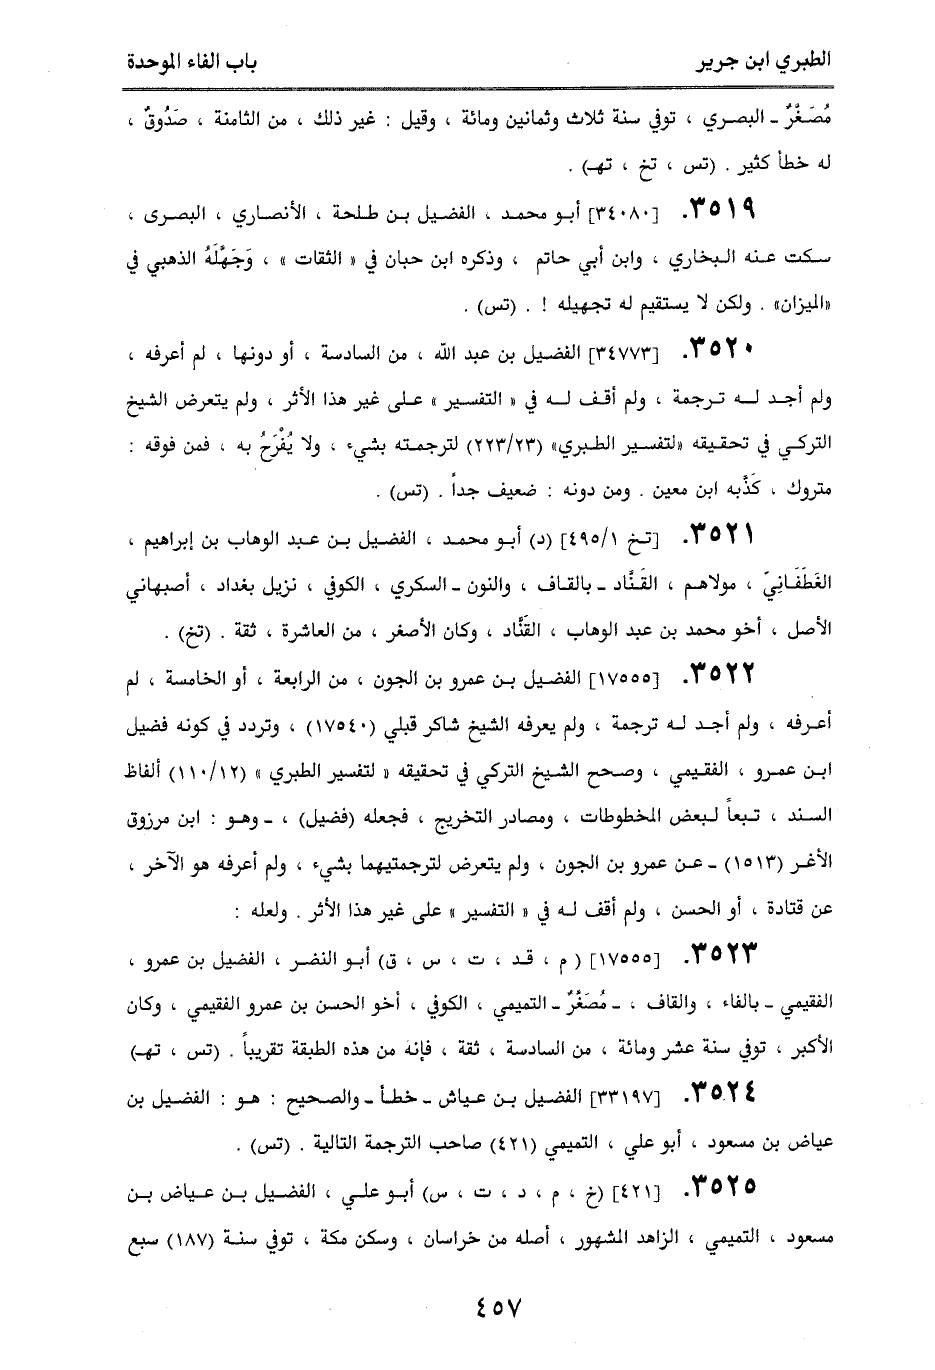 الطبري ابن جرير باب الفاء الموحدة
مُصَغَّرٌ ـ البصري ، توفي سنة ثلاث وثمانين ومائة ، وقيل : غير ذلك ، من الثامنة ، صَدُوقٌ ،
له خطأ كثير . (تس ، تخ ، تهـ) .
٣٥١٩. [٣٤٠٨٠] أبو محمد ، الفضيل بن طلحة ، الأنصاري ، البصرى ،
سكت عنه البخاري ، وابن أبي حاتم ، وذكره ابن حبان في « الثقات » ، وَجَهَّلَهُ الذهبي في
«الميزان» . ولكن لا يستقيم له تجهيله ! . (تس) .
٣٥٢٠. [٣٤٧٧٣] الفضيل بن عبد الله ، من السادسة ، أو دونها ، لم أعرفه ،
ولم أجد له ترجمة ، ولم أقف له في « التفسير » على غير هذا الأثر ، ولم يتعرض الشيخ
التركي في تحقيقه «لتفسير الطبري» (٢٢٣/٢٣) لترجمته بشيء ، ولا يُفْرَحُ به ، فمن فوقه :
متروك ، كَذَّبه ابن معين . ومن دونه : ضعيف جداً . (تس) .
٣٥٢١. [تخ ٤٩٥/١] (د) أبو محمد ، الفضيل بن عبد الوهاب بن إبراهيم ،
الغَطَفَانِيّ ، مولاهم ، القَنَّاد ـ بالقاف ، والنون ـ السكري ، الكوفي ، نزيل بغداد ، أصبهاني
الأصل ، أخو محمد بن عبد الوهاب ، القَنَّاد ، وكان الأصغر ، من العاشرة ، ثقة . (تخ) .
٣٥٢٢. [١٧٥٥٥] الفضيل بن عمرو بن الجون ، من الرابعة ، أو الخامسة ، لم
أعرفه ، ولم أجد له ترجمة ، ولم يعرفه الشيخ شاكر قبلي (١٧٥٤٠) ، وتردد في كونه فضيل
ابن عمرو ، الفقيمي ، وصحح الشيخ التركي في تحقيقه « لتفسير الطبري » (١١٠/١٢) ألفاظ
السند ، تبعاً لبعض المخطوطات ، ومصادر التخريج ، فجعله (فضيل) ، ـ وهو : ابن مرزوق
الأغر (١٥١٣) ـ عن عمرو بن الجون ، ولم يتعرض لترجمتيهما بشيء ، ولم أعرفه هو الآخر ،
عن قتادة ، أو الحسن ، ولم أقف له في « التفسير » على غير هذا الأثر . ولعله :
٣٥٢٣. [١٧٥٥٥] ( م ، قد ، ت ، س ، ق) أبو النضر ، الفضيل بن عمرو ،
الفقيمي ـ بالفاء ، والقاف ، ـ مُصَغَّرٌ ـ التميمي ، الكوفي ، أخو الحسن بن عمرو الفقيمي ، وكان
الأكبر ، توفي سنة عشر ومائة ، من السادسة ، ثقة ، فإنه من هذه الطبقة تقريباً . (تس ، تهـ)
٣٥٢٤. [٣٣١٩٧] الفضيل بن عياش ـ خطأ ـ والصحيح : هو : الفضيل بن
عياض بن مسعود ، أبو علي ، التميمي (٤٢١) صاحب الترجمة التالية . (تس) .
٣٥٢٥. [٤٢١] (خ ، م ، د ، ت ، س) أبو علي ، الفضيل بن عياض بن
مسعود ، التميمي ، الزاهد المشهور ، أصله من خراسان ، وسكن مكة ، توفي سنة (١٨٧) سبع
٤٥٧